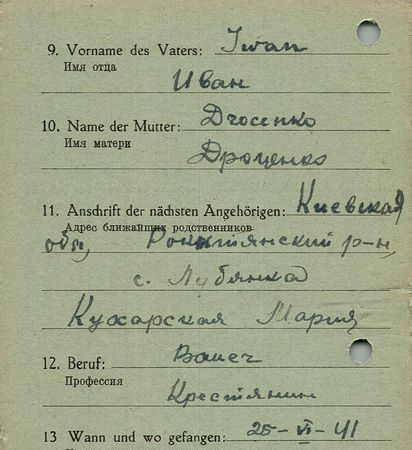 9. Vorname des Vaters: Iwan
Имя отца
Иван
10. Name der Mutter:
Имя матери
Дроценко
11. Anschrift der nächsten Angehörigen: Киевская
Адрес ближайших родственников
обл, Рокитянский р-н,
с. Лубянка
Кухарская Мария
12. Beruf:
Профессия
Крестянин
13 Wann und wo gefangen: 25-VI-41